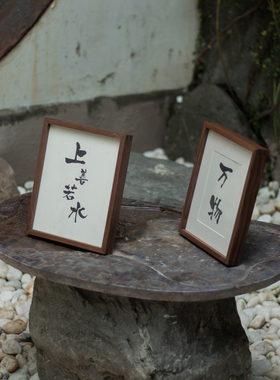 上善若水
万物